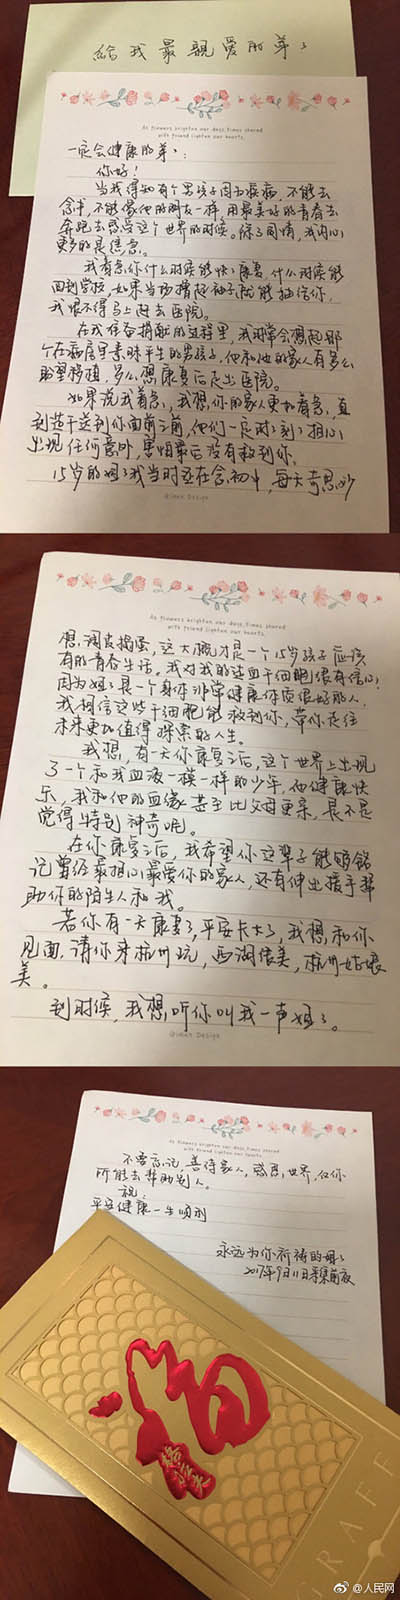 给我最亲爱的弟弟
As flowers brighten our days, times shared
with friend lighten our hearts.
一定会健康的弟弟:
你好!
当我得知有个男孩子因为疾病,不能去
念书,不能像他的朋友一样,用最美好的青春去
奔跑去感受这个世界的时候。除了同情,我内心
更多的是焦急。
我着急你什么时候能快快康复,什么时候能
回到学校,如果当场撸起袖子就能抽给你,
我恨不得马上赶去医院。
在我准备捐献的过程里,我时常会想起那
个在病房里素昧平生的男孩子,他和他的家人有多么
盼望移植,多么想康复后走出医院。
如果说我着急,我想你的家人更加着急,直
到造干送到你面前之前,他们一定时时刻刻担心
出现任何意外,害怕最后没有救到你。
15岁的姐姐我当时还在念初中,每天奇思妙
@iMan Design
As flowers brighten our days, times shared
with friend lighten our hearts.
想,调皮捣蛋,这大概才是一个15岁孩子应该
有的青春生活。我对我的造血干细胞很有信心,
因为姐姐是一个身体非常健康体质很好的人,
我相信这些干细胞能救到你,带你走往
未来更加值得探索的人生。
我想,有一天你康复之后,这个世界上出现
了一个和我血液一模一样的少年,他健康快
乐,我和他的血缘甚至比父母更亲,是不是
觉得特别神奇呢。
在你康复之后,我希望你这辈子能够铭
记曾经最担心最爱你的家人,还有伸出援手帮
助你的陌生人和我。
若你有一天康复了,平安长大了,我想和你
见面,请你来杭州玩,西湖很美,杭州姑娘
美。
到时候,我想听你叫我一声姐姐。
@iMan Design
As flowers brighten our days, times shared
with friend lighten our hearts.
不要忘记,善待家人,感恩世界,尽你
所能去帮助别人。
祝:
平安健康一生顺利
永远为你祈祷的姐姐
2017年9月11日采集前夜
福
GRAFF
@人民网